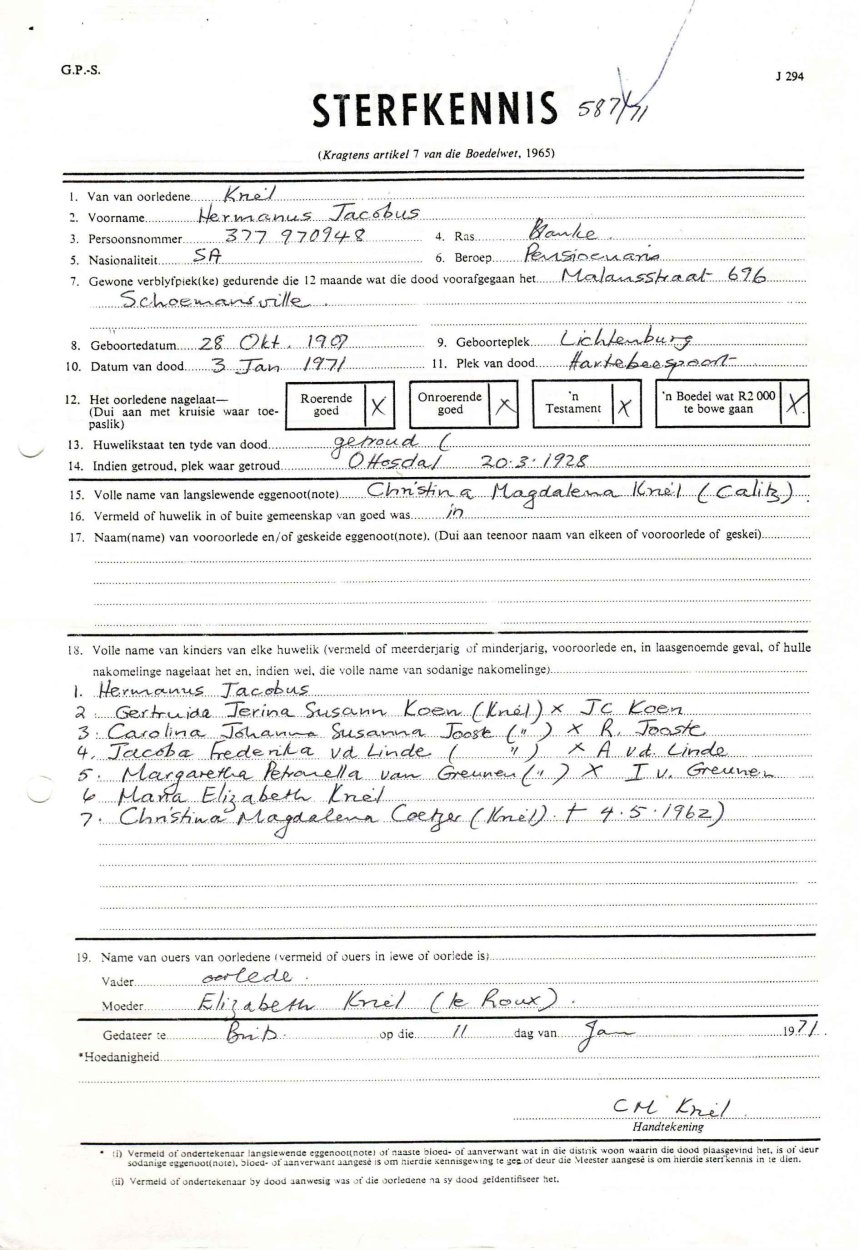 G.P.-S.
J 294
STERFKENNIS 587/71
(Kragtens artikel 7 van die Boedelwet, 1965)
1. Van van oorledene Kriël
2. Voorname Hermanus Jacobus
3. Persoonsnommer 377 970948 4. Ras Blanke
5. Nasionaliteit SA 6. Beroep Pensioenaris
7. Gewone verblyfplek(ke) gedurende die 12 maande wat die dood voorafgegaan het Malansstraat 696
Schoemansville
8. Geboortedatum 28 Okt. 1907 9. Geboorteplek Lichtenburg
10. Datum van dood 3 Jan 1971 11. Plek van dood Hartebeespoort
12. Het oorledene nagelaat— (Dui aan met kruisie waar toepaslik) Roerende goed X Onroerende goed X 'n Testament X 'n Boedel wat R2 000 te bowe gaan X
13. Huwelikstaat ten tyde van dood getroud (
14. Indien getroud, plek waar getroud Ottosdal 20·3·1928
15. Volle name van langslewende eggenoot(note) Christina Magdalena Kriël (Calitz)
16. Vermeld of huwelik in of buite gemeenskap van goed was in
17. Naam(name) van vooroorlede en/of geskeide eggenoot(note). (Dui aan teenoor naam van elkeen of vooroorlede of geskei)
18. Volle name van kinders van elke huwelik (vermeld of meerderjarig of minderjarig, vooroorlede en, in laasgenoemde geval, of hulle
nakomelinge nagelaat het en, indien wel, die volle name van sodanige nakomelinge)
1. Hermanus Jacobus
2. Gertruida Jerina Susann Koen (Kriël) x JC Koen
3. Carolina Johanna Susanna Jooste (") x R. Jooste
4. Jacoba Frederika vd Linde ( " ) x A vd. Linde
5. Margaretha Petronella van Greunen (") x I v. Greunen
6 Maria Elizabeth Kriël
7. Christina Magdalena Coetzer (Kriël). † 4·5·1962)
19. Name van ouers van oorledene (vermeld of ouers in lewe of oorlede is)
Vader oorlede.
Moeder Elizabeth Kriël (le Roux).
Gedateer te Brits op die 11 dag van Jan 1971.
*Hoedanigheid
CM Kriël
Handtekening
* (i) Vermeld of ondertekenaar langslewende eggenoot(note) of naaste bloed- of aanverwant wat in die distrik woon waarin die dood plaasgevind het, is of deur
sodanige eggenoot(note), bloed- of aanverwant aangesê is om hierdie kennisgewing te gee of deur die Meester aangesê is om hierdie sterfkennis in te dien.
(ii) Vermeld of ondertekenaar by dood aanwesig was of die oorledene na sy dood geïdentifiseer het.